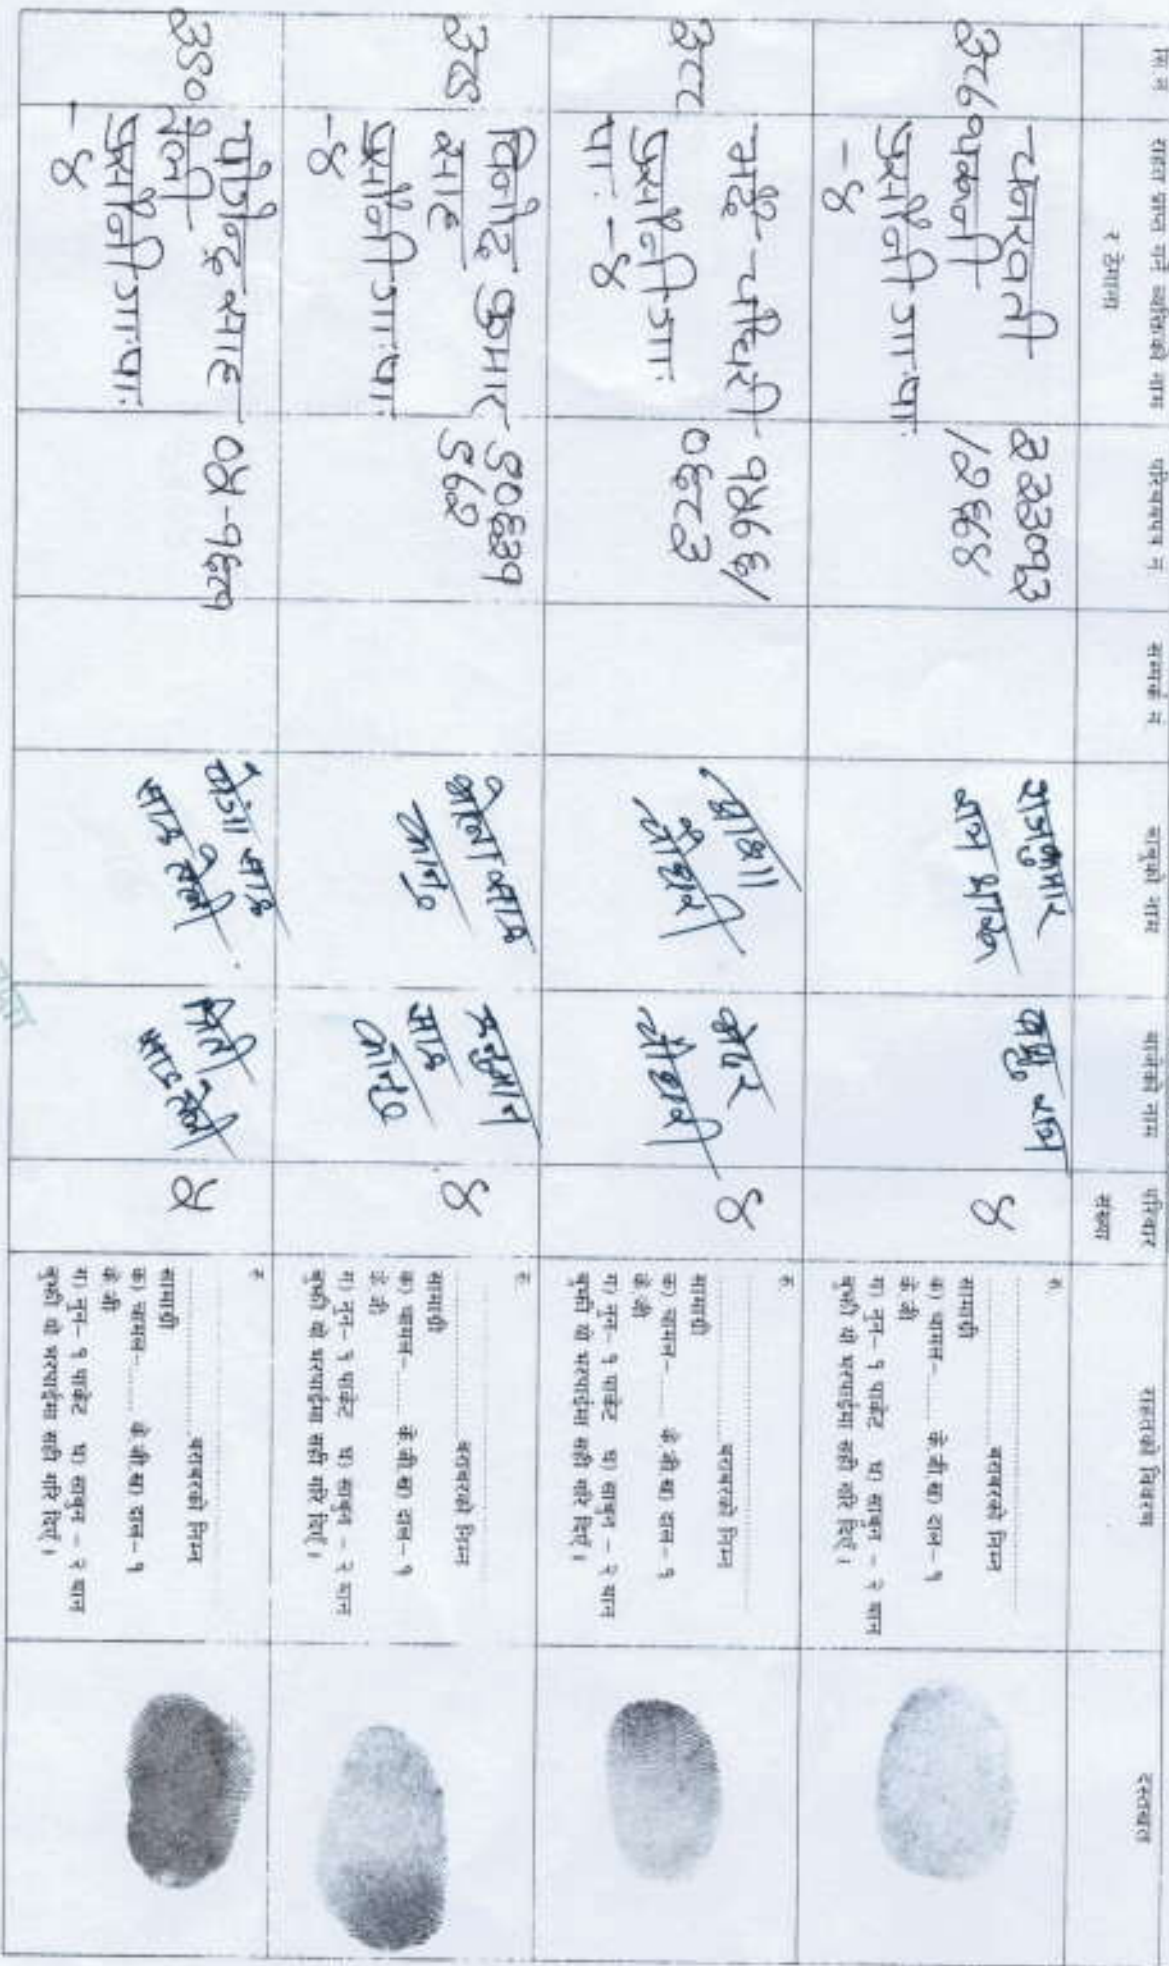 सि.नं
राहत प्राप्त गर्ने व्यक्तिको नाम
र ठेगाना
परिचयपत्र नं
सम्पर्क नं
बाबुको नाम
बाजेको नाम
परिवार
संख्या
राहतको विवरण
दस्तखत
३८७
थकनी
प्रसौनी गा.पा.
-४
२३३०१३
/२६७४
राजकुमार
राम
राम
४
रु.
बराबरको निम्न
सामाग्री
क) चामल-...... के.जी.ख) दाल- १
के.जी
ग) नुन- १ पाकेट घ) साबुन - २ थान
बुझी यो भरपाईमा सही गरि दिएँ ।
३८८
चौधरी
प्रसौनी गा.
पा. -४
१५७६/
०६८३
चौधरी
चौधरी
४
रु.
बराबरको निम्न
सामाग्री
क) चामल-...... के.जी.ख) दाल- १
के.जी
ग) नुन- १ पाकेट घ) साबुन - २ थान
बुझी यो भरपाईमा सही गरि दिएँ ।
३८९
विनोद कुमार
साह
प्रसौनी गा.पा.
-४
९०६३१
९७२
भोला साह
कानु
हनुमान
साह
कानु
४
रु.
बराबरको निम्न
सामाग्री
क) चामल-...... के.जी.ख) दाल- १
के.जी
ग) नुन- १ पाकेट घ) साबुन - २ थान
बुझी यो भरपाईमा सही गरि दिएँ ।
३९०
योगेन्द्र साह
तेली
प्रसौनी गा.पा.
-४
०५-१६८१
साह
साह तेली
साह तेली
५
रु.
बराबरको निम्न
सामाग्री
क) चामल-...... के.जी.ख) दाल- १
के.जी
ग) नुन- १ पाकेट घ) साबुन - २ थान
बुझी यो भरपाईमा सही गरि दिएँ ।